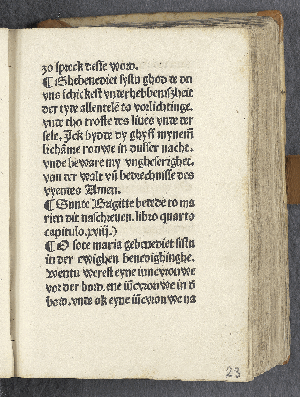 zo spreck desse word.
¶ Ghebenediet systu ghod de dū
vns schickest vnderhebbenisheit
der tyde allentelē to vorlichtinge.
vnde tho troste des liues vnde der
sele, Ick bydde dy ghyff mynem̄
lichāme rouwe in dusser nacht.
vnde beware my vngheserighet.
van der walt vn̄ bedrechnisse des
vyendes Amen.
¶ Sunte Birgitte bedede to ma
rien dit naschreuen. libro quarto
capitulo. xviij.)
¶ O sote maria gebenediet sistu
in der ewighen benedighinghe.
Wentu werest eyne iuncvrouwe
vor der bord. ene iūcvrouwe in d̓
bord. vnde ok eyne iūcvrouwe na
23